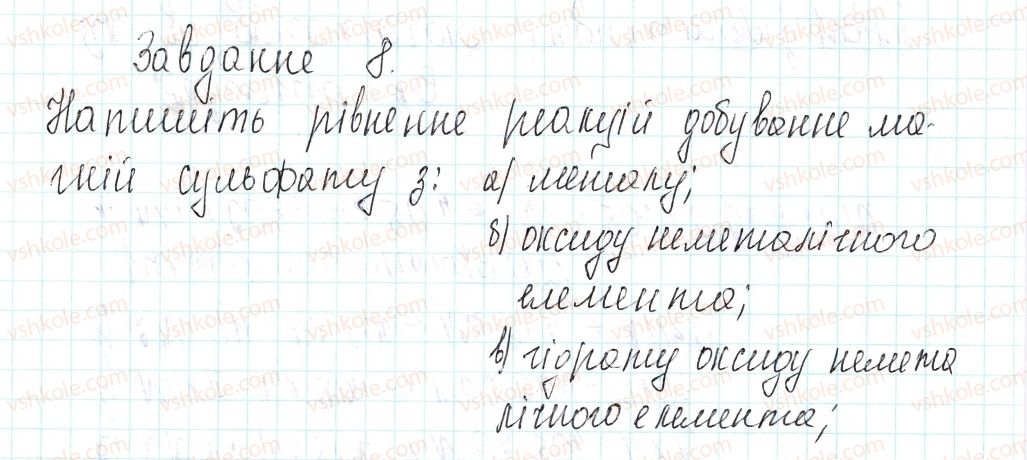 Завдання 8.
Напишіть рівняння реакцій добування ма-
гній сульфату з: а) металу;
б) оксиду неметалічного
елемента;
в) гідрату оксиду немета
лічного елемента;